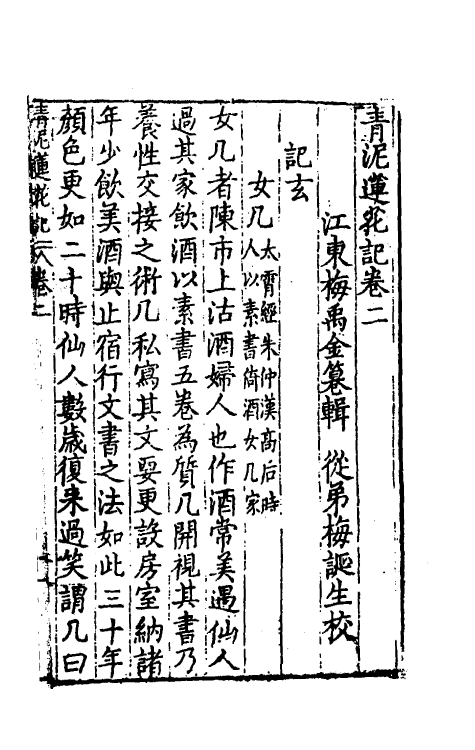 青泥蓮花記卷二
江東梅禹金纂輯　從弟梅誕生校
記玄
女几太霄經朱仲漢高后時
人以素書倚酒女几家
女几者陳市上沽酒婦人也作酒常美遇仙人
過其家飲酒以素書五卷為質几開視其書乃
養性交接之術几私寫其文要更設房室納諸
年少飲美酒與止宿行文書之法如此三十年
顏色更如二十時仙人數歲復来過笑謂几曰
青泥蓮花記 卷二